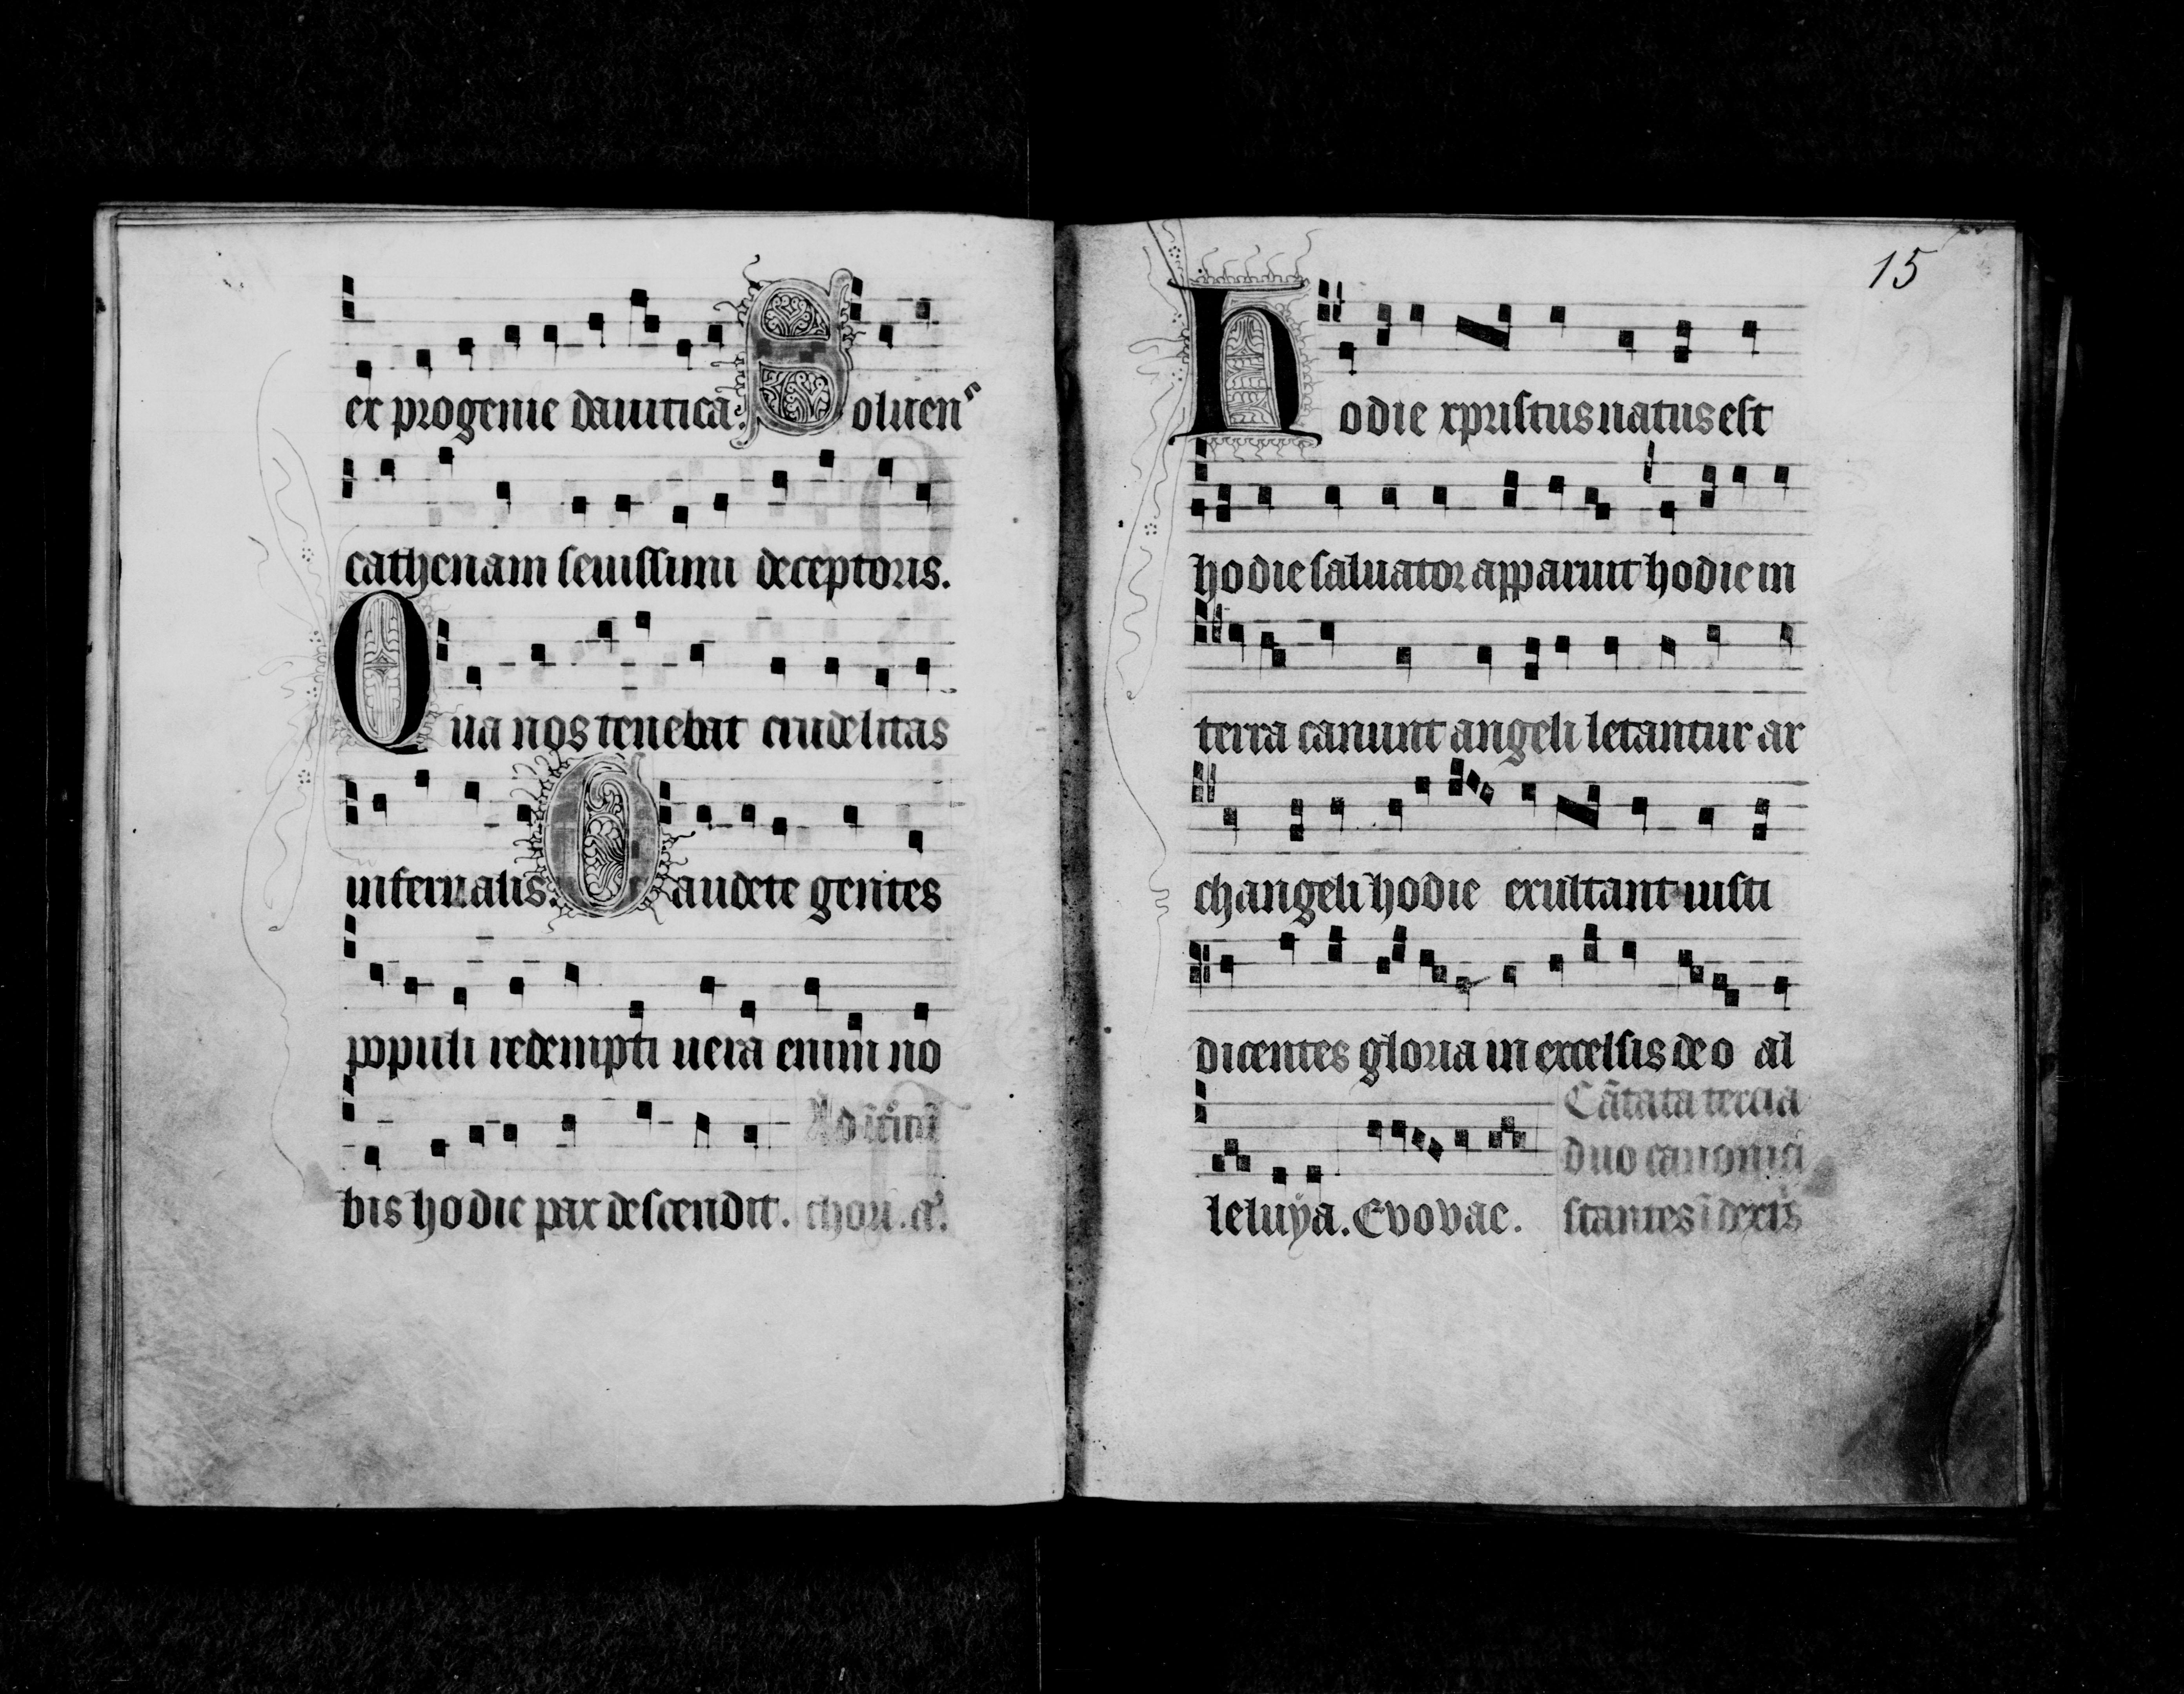 ex progenie dauitica. Soluens
cathenam seuissimi deceptoris.
Qua nos tenebat crudelitas
infernalis. Gaudete gentes
populi redempti uera enim no
bis hodie pax descendit. chori. a.
15
Hodie xpristus natus est
hodie saluator apparuit hodie in
terra canunt angeli letantur ar
changeli hodie exultant iusti
dicentes gloria in excelsis deo al
Cātata tercia
duo canonici
leluya. Evovae. stantes ī dextris